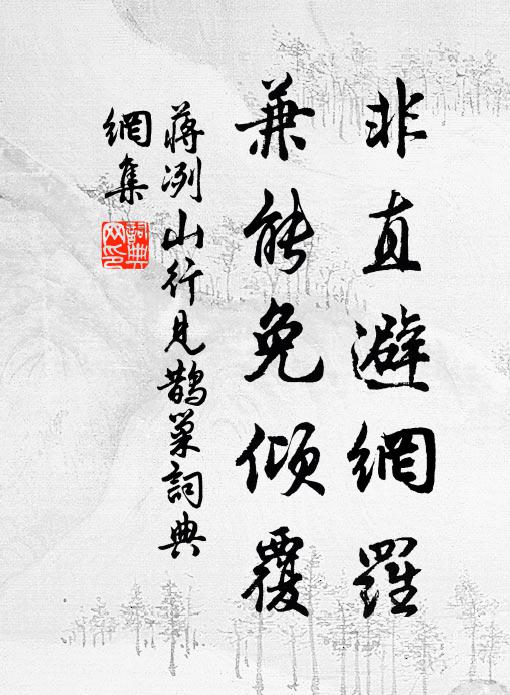 非直避網羅
兼能免傾覆
蔣冽山行見鵲巢詞典
網集
詞典
网印